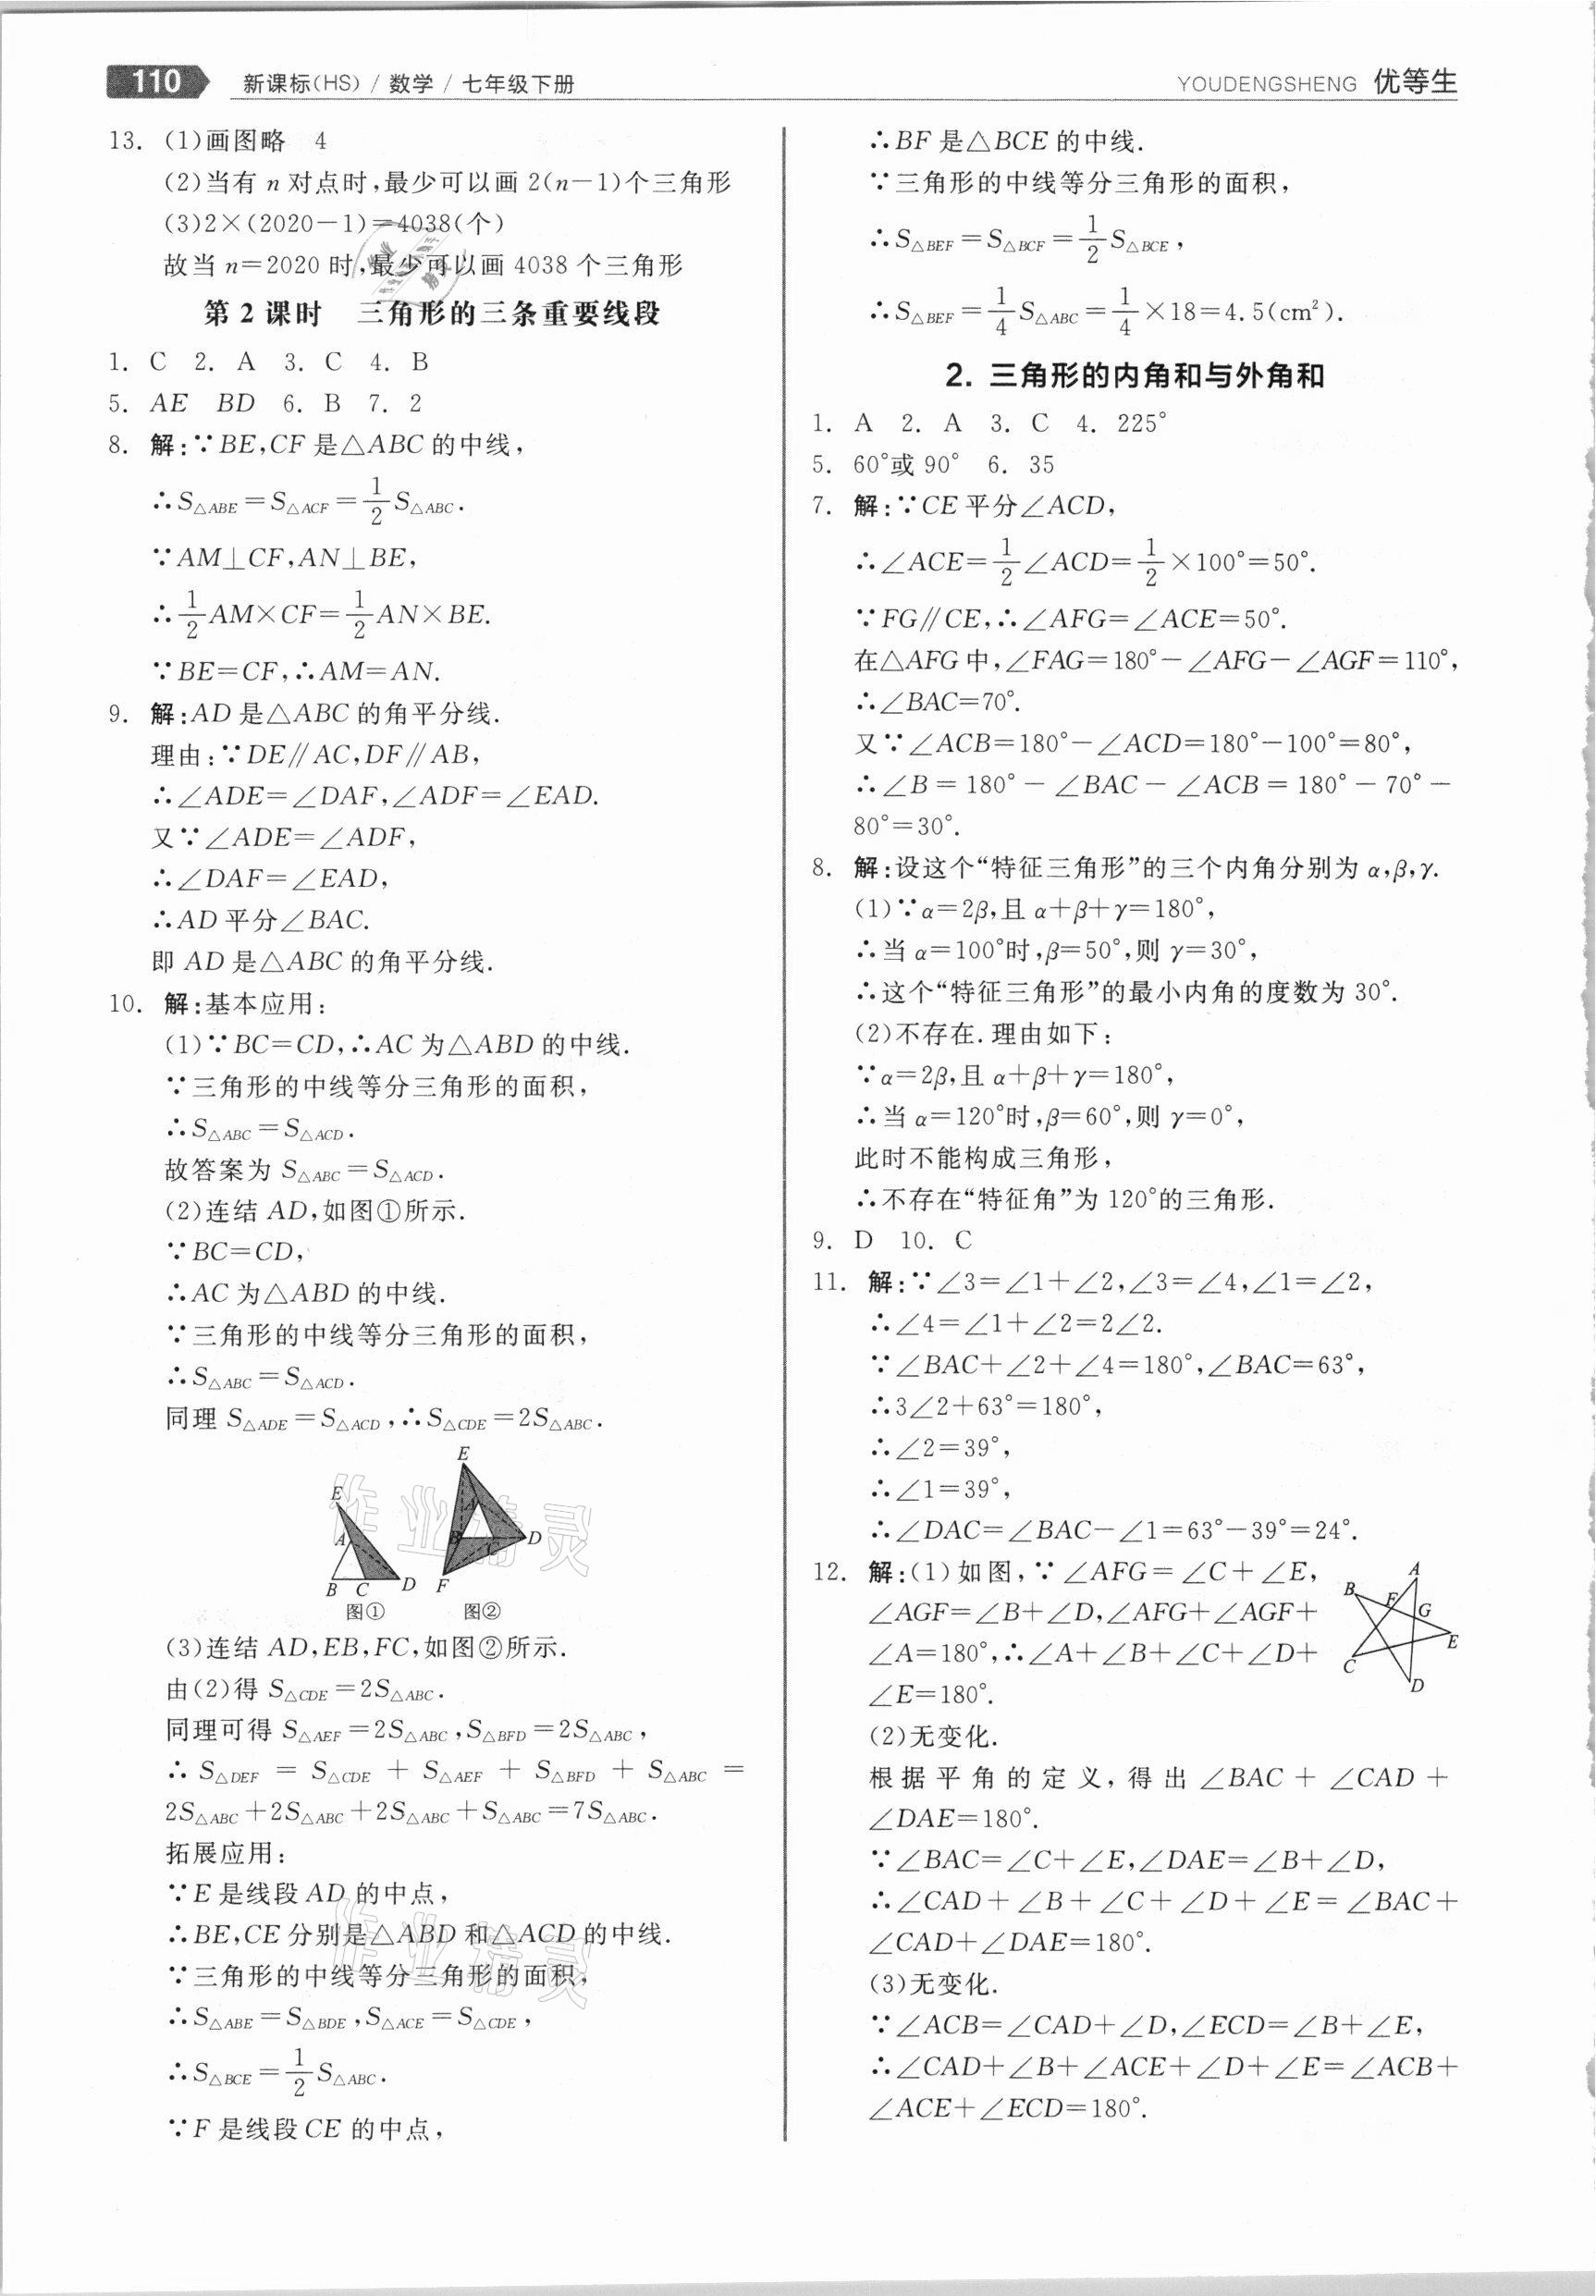 110 新课标(HS) / 数学 / 七年级下册
YOUDENGSHENG 优等生
13. (1)画图略 4
(2)当有 n 对点时,最少可以画 2(n-1)个三角形
(3)2×(2020-1)=4038(个)
故当 n=2020 时,最少可以画 4038 个三角形
第 2 课时 三角形的三条重要线段
1. C 2. A 3. C 4. B
5. AE BD 6. B 7. 2
8. 解:∵BE,CF 是△ABC 的中线,
∴S△ABE=S△ACF=1/2 S△ABC.
∵AM⊥CF,AN⊥BE,
∴1/2 AM×CF=1/2 AN×BE.
∵BE=CF,∴AM=AN.
9. 解:AD 是△ABC 的角平分线.
理由:∵DE∥AC,DF∥AB,
∴∠ADE=∠DAF,∠ADF=∠EAD.
又∵∠ADE=∠ADF,
∴∠DAF=∠EAD,
∴AD 平分∠BAC.
即 AD 是△ABC 的角平分线.
10. 解:基本应用:
(1)∵BC=CD,∴AC 为△ABD 的中线.
∵三角形的中线等分三角形的面积,
∴S△ABC=S△ACD.
故答案为 S△ABC=S△ACD.
(2)连结 AD,如图①所示.
∵BC=CD,
∴AC 为△ABD 的中线.
∵三角形的中线等分三角形的面积,
∴S△ABC=S△ACD.
同理 S△ADE=S△ACD,∴S△CDE=2S△ABC.
E A B C D
图①
E A B C D F
图②
(3)连结 AD,EB,FC,如图②所示.
由(2)得 S△CDE=2S△ABC.
同理可得 S△AEF=2S△ABC,S△BFD=2S△ABC,
∴ S△DEF = S△CDE + S△AEF + S△BFD + S△ABC =
2S△ABC+2S△ABC+2S△ABC+S△ABC=7S△ABC.
拓展应用:
∵E 是线段 AD 的中点,
∴BE,CE 分别是△ABD 和△ACD 的中线.
∵三角形的中线等分三角形的面积,
∴S△ABE=S△BDE,S△ACE=S△CDE,
∴S△BCE=1/2 S△ABC.
∵F 是线段 CE 的中点,
∴BF 是△BCE 的中线.
∵三角形的中线等分三角形的面积,
∴S△BEF=S△BCF=1/2 S△BCE,
∴S△BEF=1/4 S△ABC=1/4×18=4.5(cm²).
2. 三角形的内角和与外角和
1. A 2. A 3. C 4. 225°
5. 60°或 90° 6. 35
7. 解:∵CE 平分∠ACD,
∴∠ACE=1/2∠ACD=1/2×100°=50°.
∵FG∥CE,∴∠AFG=∠ACE=50°.
在△AFG 中,∠FAG=180°-∠AFG-∠AGF=110°,
∴∠BAC=70°.
又∵∠ACB=180°-∠ACD=180°-100°=80°,
∴∠B = 180° - ∠BAC - ∠ACB = 180° - 70° -
80°=30°.
8. 解:设这个“特征三角形”的三个内角分别为 α,β,γ.
(1)∵α=2β,且 α+β+γ=180°,
∴当 α=100°时,β=50°,则 γ=30°,
∴这个“特征三角形”的最小内角的度数为 30°.
(2)不存在.理由如下:
∵α=2β,且 α+β+γ=180°,
∴当 α=120°时,β=60°,则 γ=0°,
此时不能构成三角形,
∴不存在“特征角”为 120°的三角形.
9. D 10. C
11. 解:∵∠3=∠1+∠2,∠3=∠4,∠1=∠2,
∴∠4=∠1+∠2=2∠2.
∵∠BAC+∠2+∠4=180°,∠BAC=63°,
∴3∠2+63°=180°,
∴∠2=39°,
∴∠1=39°,
∴∠DAC=∠BAC-∠1=63°-39°=24°.
12. 解:(1)如图,∵∠AFG=∠C+∠E,
∠AGF=∠B+∠D,∠AFG+∠AGF+
∠A=180°,∴∠A+∠B+∠C+∠D+
∠E=180°.
A B F G E C D
(2)无变化.
根据平角的定义,得出∠BAC+∠CAD+
∠DAE=180°.
∵∠BAC=∠C+∠E,∠DAE=∠B+∠D,
∴∠CAD+∠B+∠C+∠D+∠E=∠BAC+
∠CAD+∠DAE=180°.
(3)无变化.
∵∠ACB=∠CAD+∠D,∠ECD=∠B+∠E,
∴∠CAD+∠B+∠ACE+∠D+∠E=∠ACB+
∠ACE+∠ECD=180°.
作业精灵
作业精灵